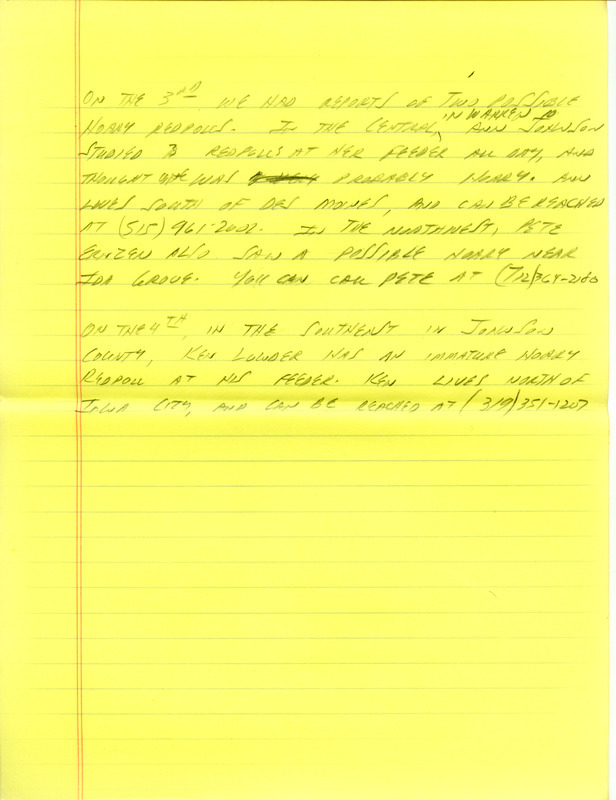 ON THE 3RD WE HAD REPORTS OF TWO POSSIBLE
HOARY REDPOLLS. IN THE CENTRAL, IN WARREN CO ANN JOHNSON
STUDIED 3 REDPOLLS AT HER FEEDER ALL DAY, AND
THOUGHT WAS PROBABLY HOARY. ANN
LIVES SOUTH OF DES MOINES, AND CAN BE REACHED
AT (515) 961-2002. IN THE NORTHWEST, PETE
ERNZEN ALSO SAW A POSSIBLE HOARY NEAR
IDA GROVE. YOU CAN CALL PETE AT (712) 364-2180
ON THE 4TH, IN THE SOUTHEAST IN JOHNSON
COUNTY, KEN LOWDER HAS AN IMMATURE HOARY
REDPOLL AT HIS FEEDER. KEN LIVES NORTH OF
IOWA CITY, AND CAN BE REACHED AT (319) 351-1207